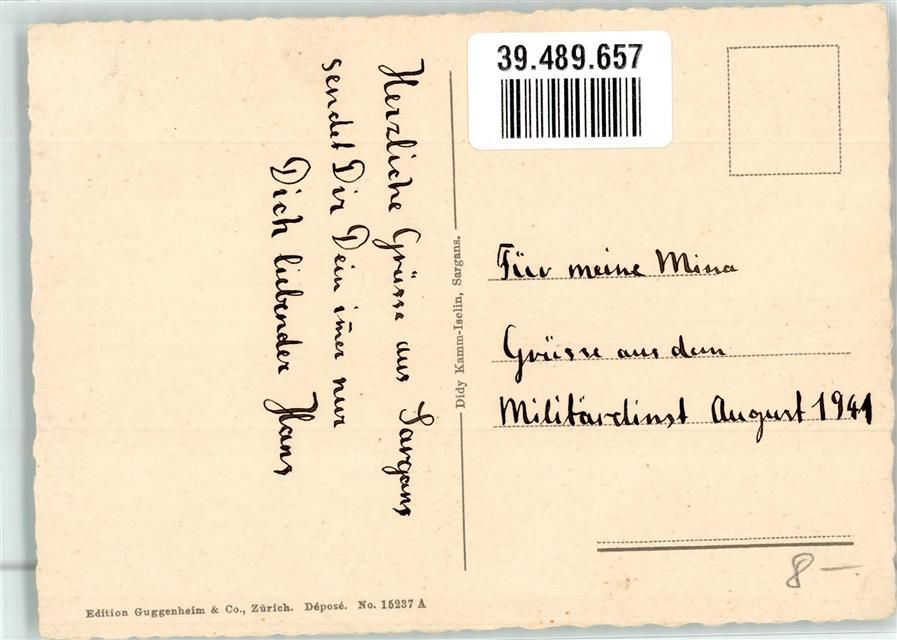 39.489.657
Herzliche Grüsse aus Sargans
sendet Dir Dein im̅er nur
Dich liebender Hans
Didy Kamm-Iselin, Sargans.
Für meine Mina
Grüsse aus dem
Militärdinst August 1941
8 —
Edition Guggenheim & Co., Zürich. Déposé. No. 15237 A